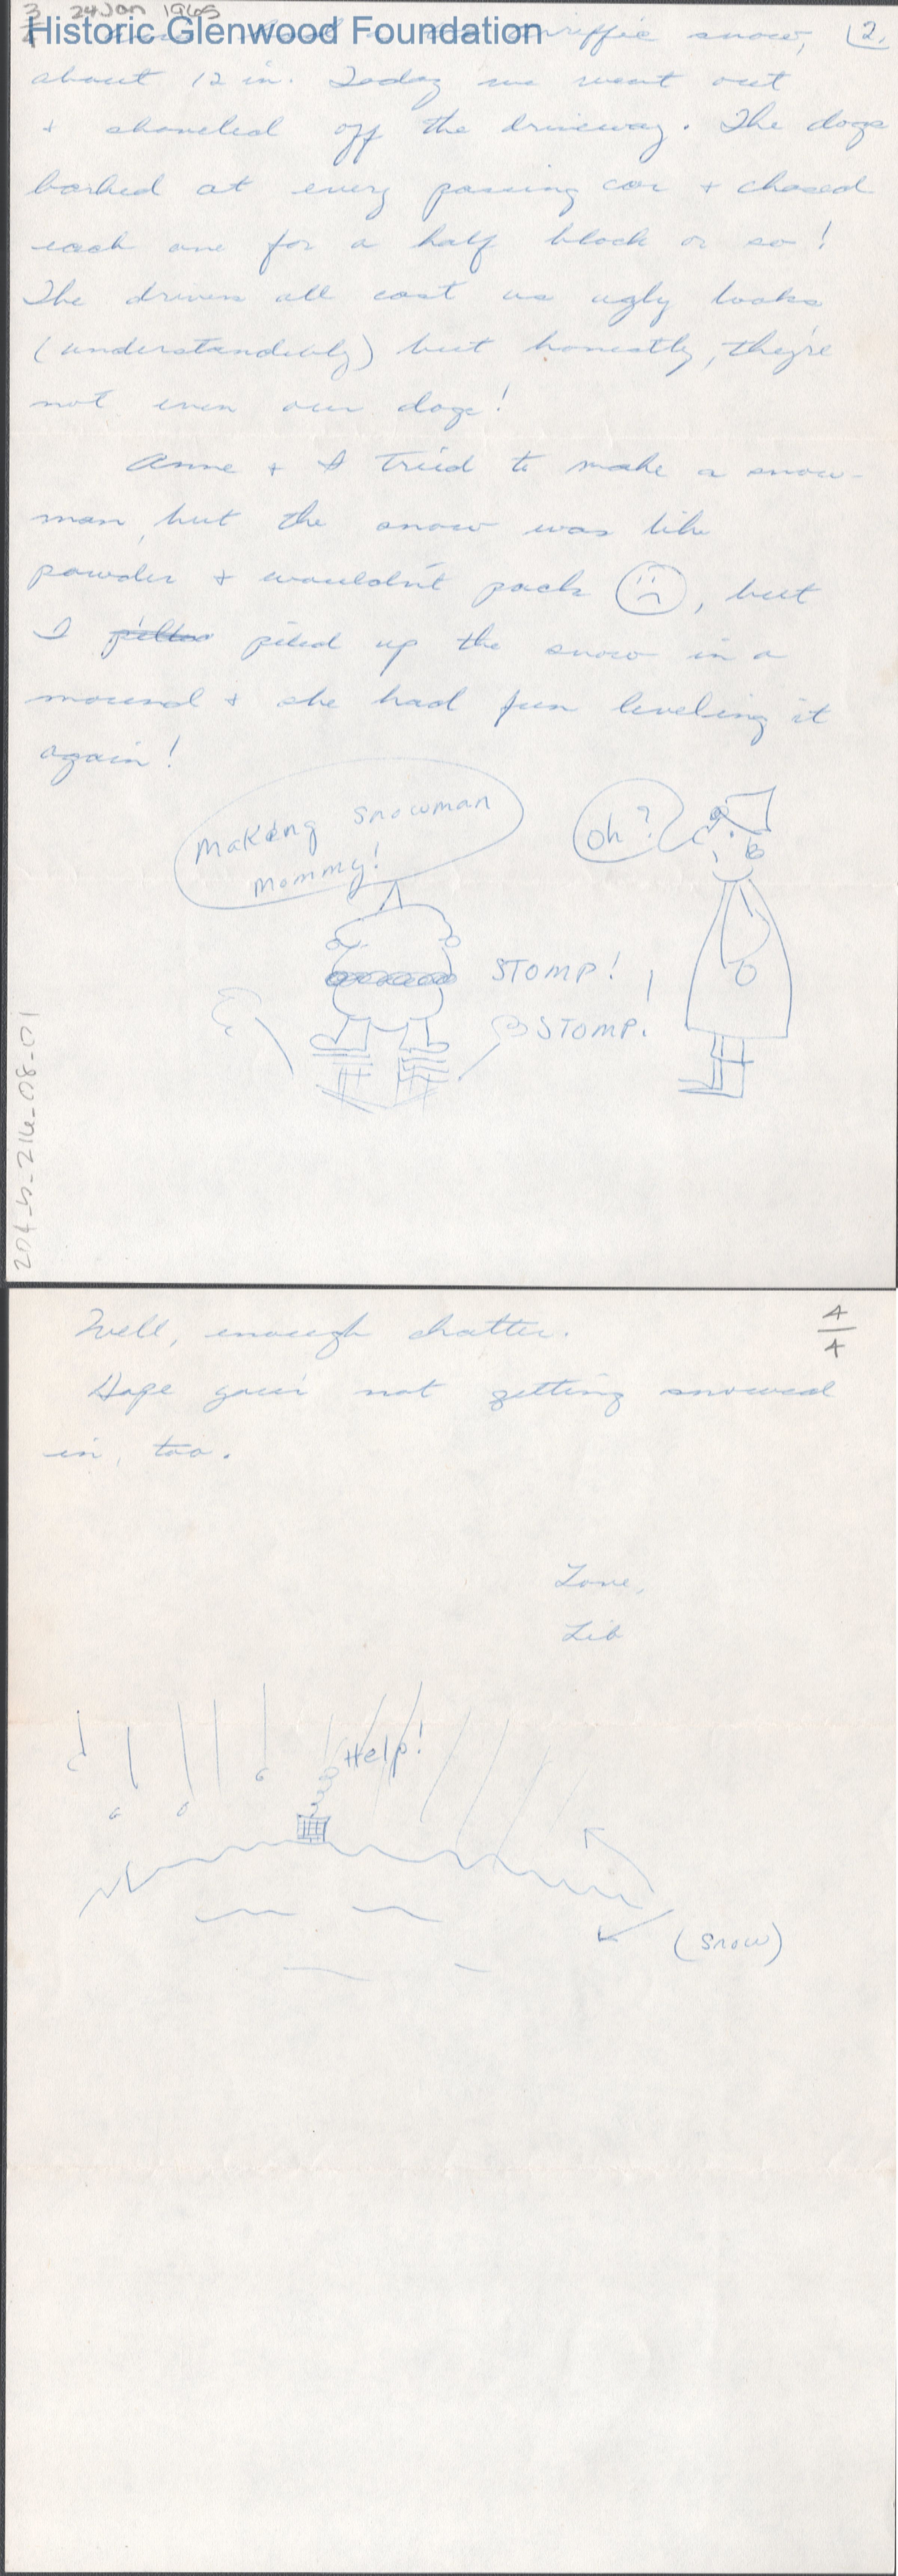 3
4
24 Jan 1965
Historic Glenwood Foundation
had terriffic snow,
2.
about 12 in. Today we went out
+ shoveled off the driveway. The dogs
barked at every passing car + chased
each one for a half block or so!
The drivers all cast us ugly looks
(understandibly) but honestly, they're
not even our dogs!
Anne + I tried to make a snow-
man, but the snow was like
powder + wouldn't pack , but
I piled up the snow in a
mound + she had fun leveling it
again!
Making snowman
Mommy!
Oh?
STOMP!
STOMP!
204-5-216-08-01
Well, enough chatter.
4
4
Hope you're not getting snowed
in, too.
Love,
Lib
Help!
(snow)